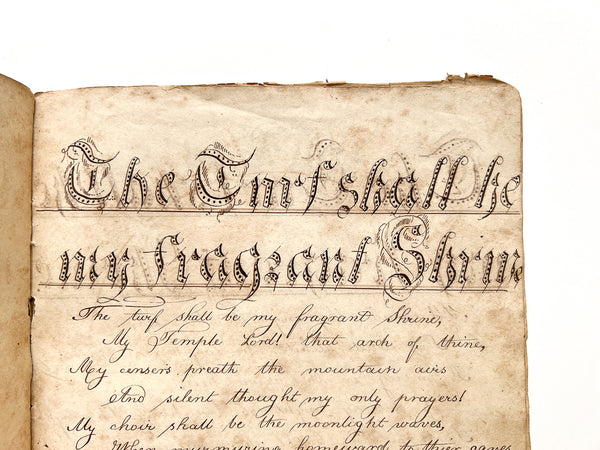 The Turf shall be
my fragrant Shrine
The turf shall be my fragrant Shrine,
My Temple Lord! that arch of thine,
My censers preath the mountain airs
And silent thought my only prayers!
My choir shall be the moonlight waves,
When murmuring homeward to thier caves